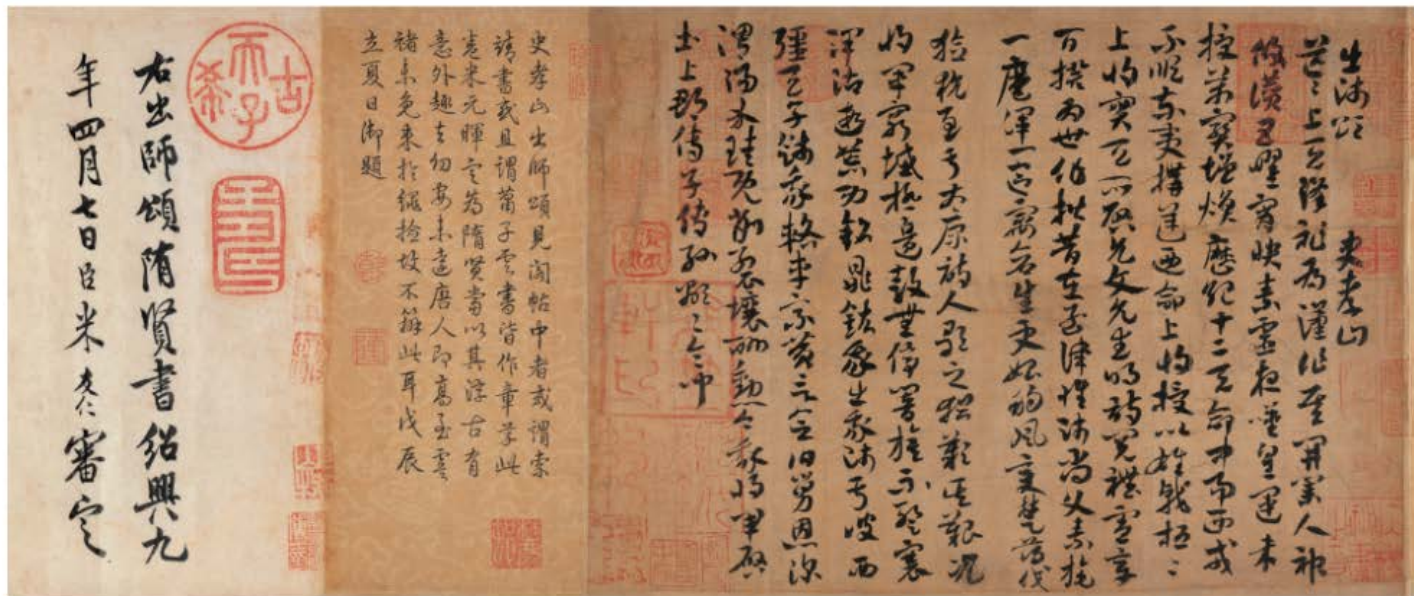 出師頌 史孝山
茫茫上天降祚為漢作基開業人神
攸讚五曜霄映素靈夜歎皇運未
授萬寶增煥歷紀十二天命中易西戎
不順東夷構逆乃命上將授以雄戟桓桓
上將實天所啟允文允武明詩閱禮憲章
百揆為世作楷昔在孟津惟師尚父素旄
一麾渾一區宇蒼生更始朔風變楚薄伐
獫狁至于太原詩人歌之猶歎其艱況
我將軍窮域極邊鼓無停響旗不蹔褰
澤沾遐荒功銘鼎鉉我出我師于彼西
疆天子餞我輅車乘黃言念舊勞恩深
渭陽介珪既削裂壤酬勳今我將軍啟
土上郡傳子傳孫顯顯令問
史孝山出師頌見閣帖中者或謂索
靖書或且謂蕭子雲書皆作章草此
卷米元暉定為隋賢當以其淳古有
意外趣去幼安未遠唐人即高至虞
褚未免束於繩檢故不辦此耳戊辰
立夏日御題
古希天子
右出師頌隋賢書紹興九
年四月七日臣米友仁審定